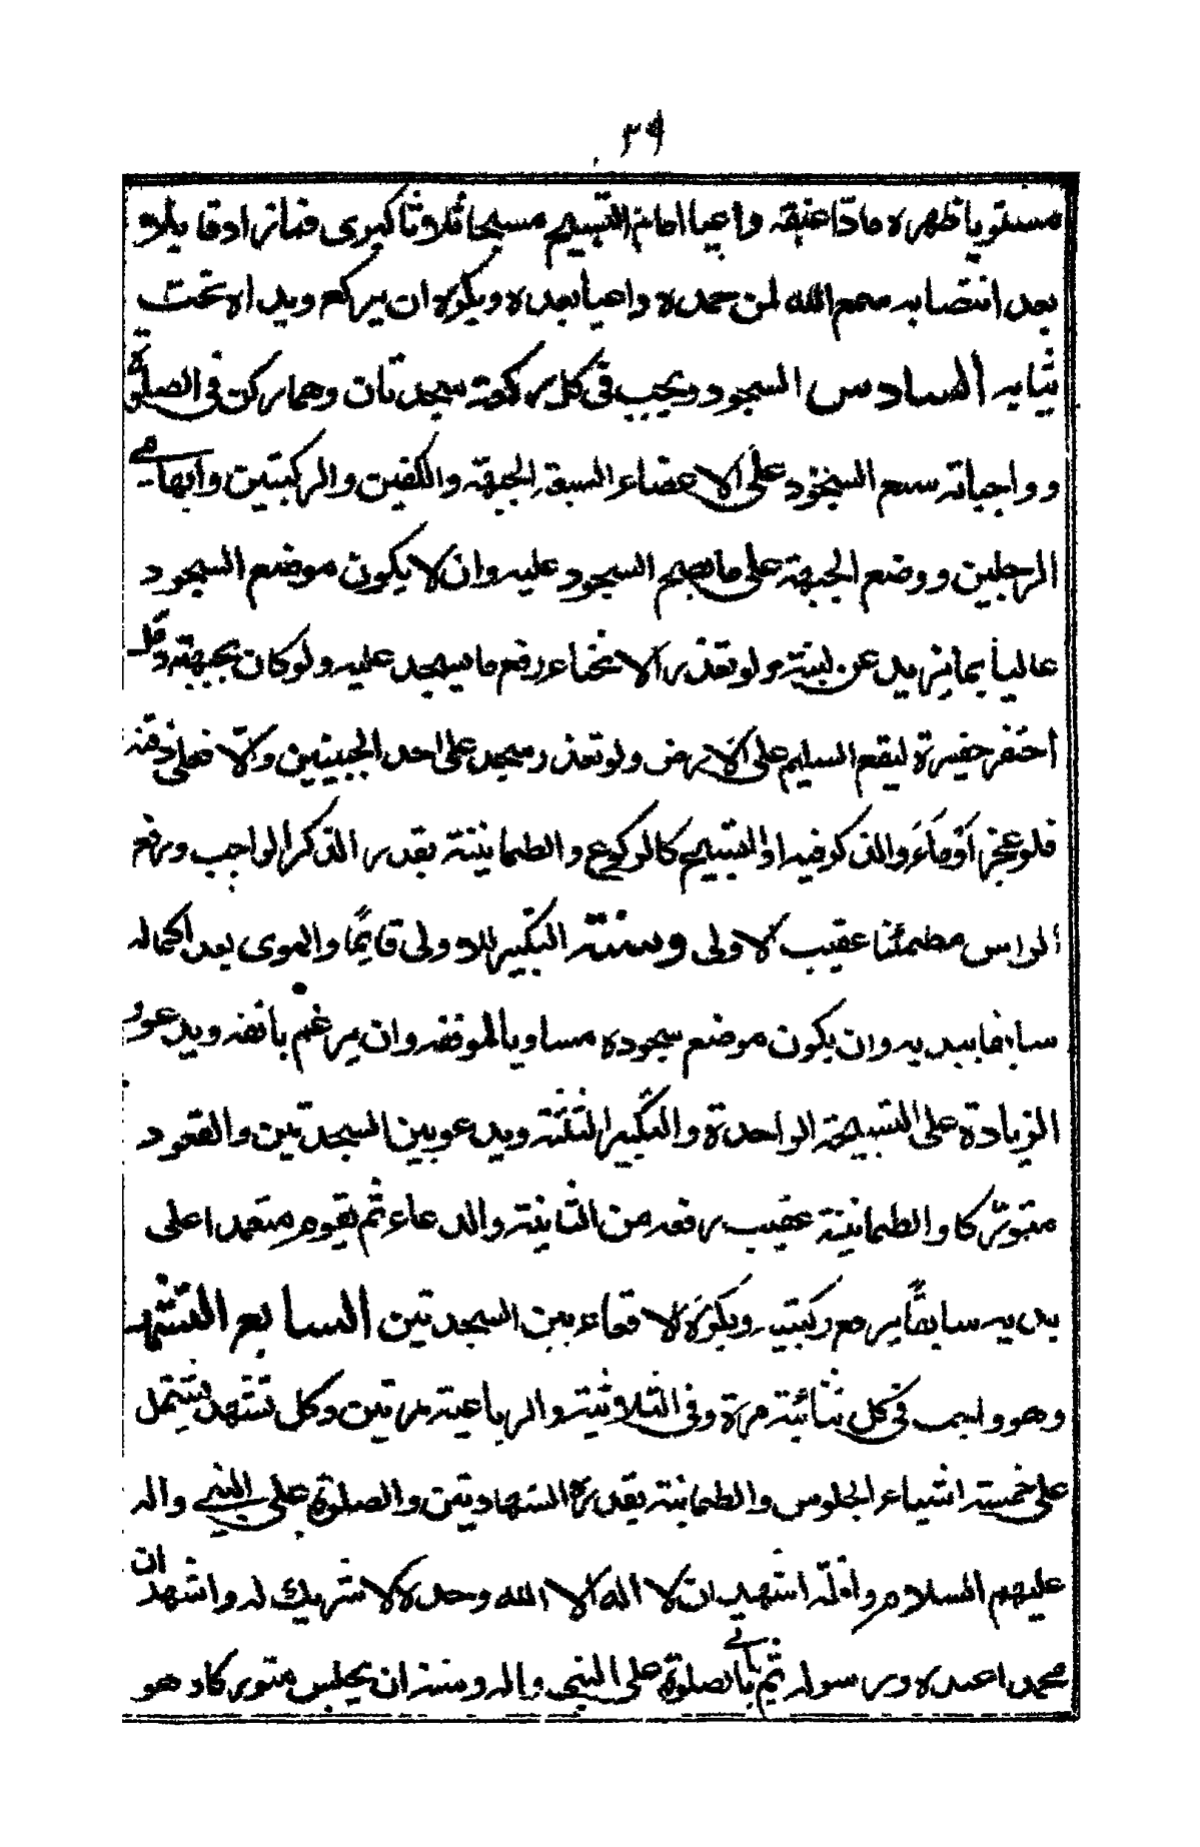 ٣٩
مستويا ظهره مادا عنقه داعيا امام التسبيح مسبحا ثلاثا كبرى فمازاد قايلا
بعد انتصابه سمع الله لمن حمده داعيا بعده ويكره ان يركع ويداه تحت
ثيابه السادس السجود ويجب فى كل ركعة سجدتان وهما ركن فى الصلوة
وواجباته سبع السجود على الاعضاء السبعة الجبهة والكفين والركبتين وابهامي
الرجلين ووضع الجبهة على ما يصح السجود عليه وان لا يكون موضع السجود
عاليا بما يزيد عن لبنة ولو تعذر الانحناء رفع ما يسجد عليه ولو كان بجبهته دمل
احتفر حفيرة ليقع السليم على الارض ولو تعذر سجد على احد الجبينين والّا فعلى ذقنه
فلو عجز اَوْمَاَءَ والذكر فيه او التسبيح كالركوع والطمانينة بقدر الذكر الواجب ورفع
الراس مطمئنا عقيب الاولى وسننه التكبير للاولى قايمًا والهوى بعد اكماله
سابقا بيديه وان يكون موضع سجوده مساويا لموقفه وان يرغم بانفه ويدعو و
الزيادة على التسبيحة الواحدة والتكبيرا لثلثة ويدعو بين السجدتين والقعود
متورّكا والطمانينة عقيب رفعه من الثانية والدعاء ثم يقوم متعمدا على
يديه سابقًا برفع ركبتيه ويكره الاقعاء بين السجدتين السابع التشهد
وهو واجب فى كل ثنائية مرة وفى الثلاثية والرباعية مرتين وكل تشهد يشتمل
على خمسة اشياء الجلوس والطمانينة بقدره الشهادتين والصلوة على النبي واله
عليهم السلام واقلّه اشهد ان لا اله الا الله وحده لا شريك له واشهد ان
محمدا عبده ورسوله ثم ياتي بالصلوة على النبى واله وسننه ان يجلس متوركا وهو